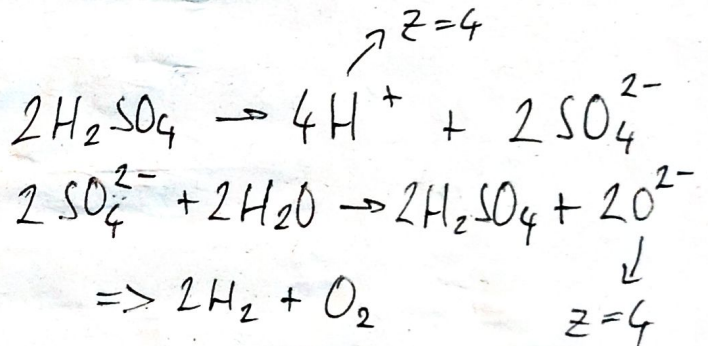 z=4
2H₂SO₄ → 4H⁺ + 2SO₄²⁻
2SO₄²⁻ + 2H₂O → 2H₂SO₄ + 2O²⁻
=> 2H₂ + O₂
z=4